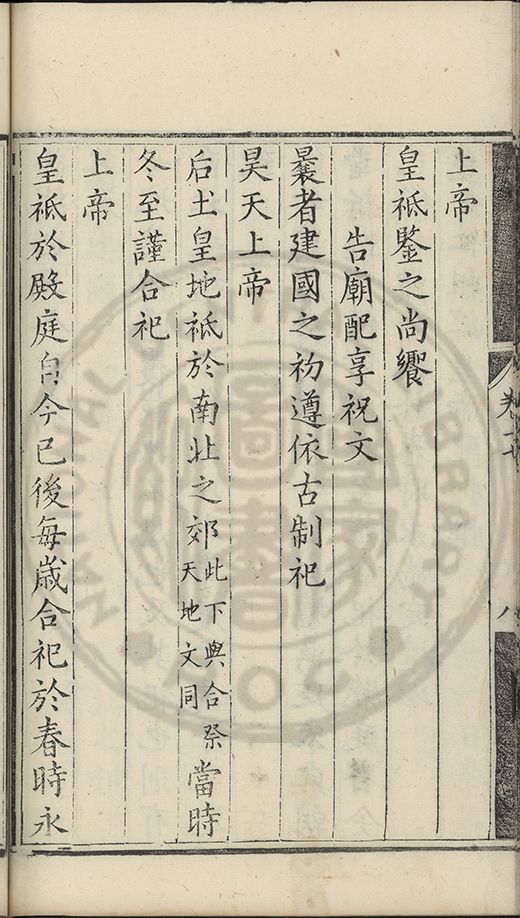 上帝
皇祇鑒之尚饗
告廟配享祝文
曩者建國之初遵依古制祀
昊天上帝
后土皇地祇於南北之郊此下與合祭天地文同當時
冬至謹合祀
上帝
皇祇於殿庭自今已後每歲合祀於春時永